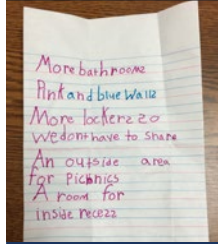 More bathroomz
Pink and blue Wallz
More lockerz zo
We dont have to share
An outside area
for Picnics
A room for
inside recezz